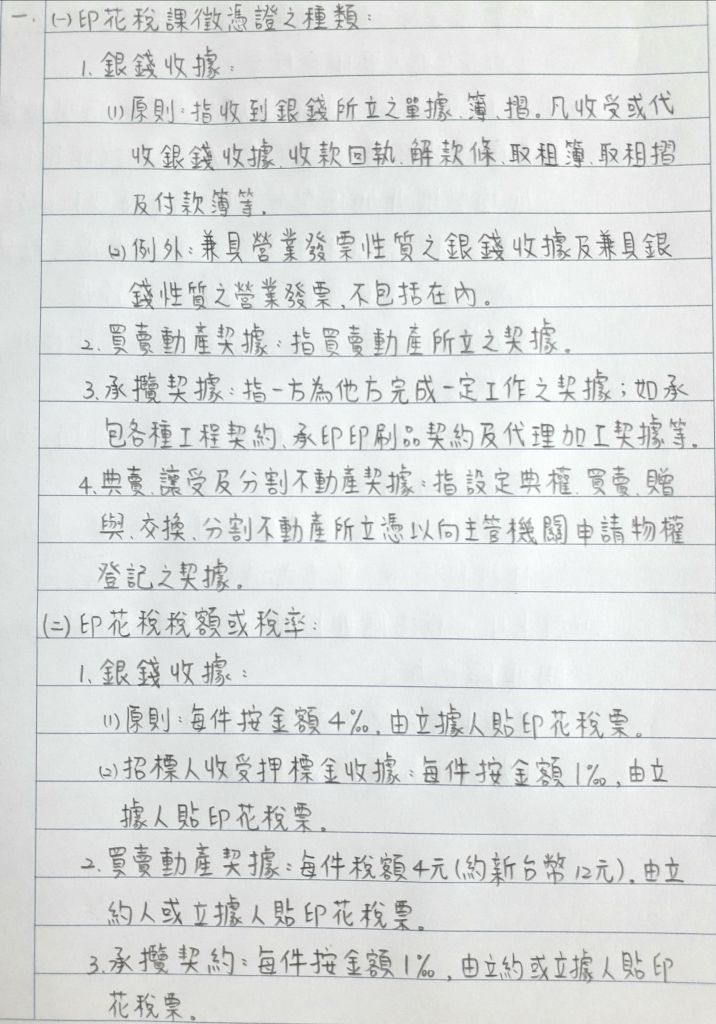 一. (一)印花稅課徵憑證之種類:
1.銀錢收據:
(1)原則:指收到銀錢所立之單據、簿、摺。凡收受或代
收銀錢收據、收款回執、解款條、取租簿、取租摺
及付款簿等。
(2)例外:兼具營業發票性質之銀錢收據及兼具銀
錢性質之營業發票,不包括在內。
2.買賣動產契據:指買賣動產所立之契據。
3.承攬契據:指一方為他方完成一定工作之契據;如承
包各種工程契約、承印印刷品契約及代理加工契據等。
4.典賣、讓受及分割不動產契據:指設定典權、買賣、贈
與、交換、分割不動產所立憑以向主管機關申請物權
登記之契據。
(二)印花稅稅額或稅率:
1.銀錢收據:
(1)原則:每件按金額4‰,由立據人貼印花稅票。
(2)招標人收受押標金收據:每件按金額1‰,由立
據人貼印花稅票。
2.買賣動產契據:每件稅額4元(約新台幣12元),由立
約人或立據人貼印花稅票。
3.承攬契約:每件按金額1‰,由立約或立據人貼印
花稅票。